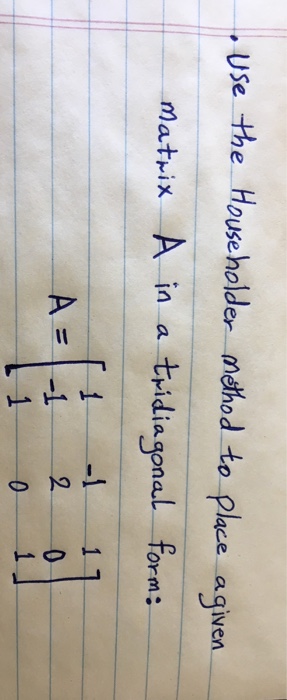 • Use the Householder method to place a given
matrix A in a tridiagonal form:
1 -1 1
A = [ -1 2 0 ]
1 0 1